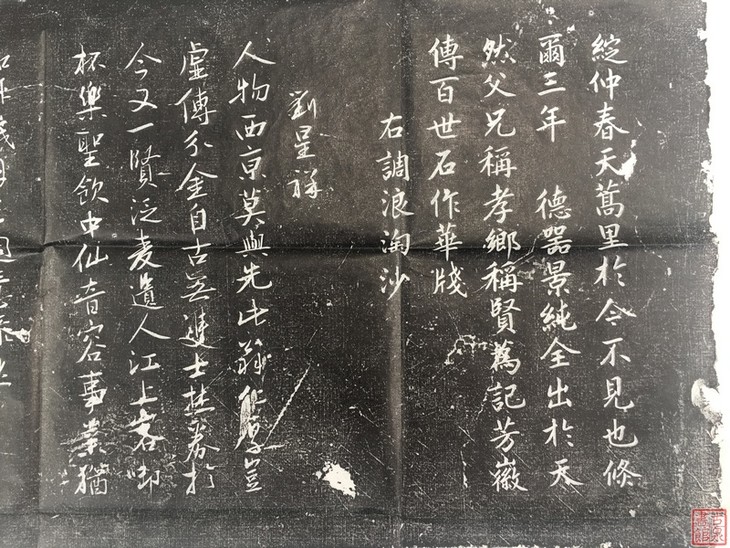 綻仲春天蒿里於今不見也倏
爾三年 德器景純全出於天
然父兄稱孝鄉稱賢為記芳徽
傳百世石作華牋
右調浪淘沙
劉星祥
人物西京莫與先此翁學豈
虛傳分金自古無雙士焚券於
今又一賢泛麥遺人江上客啣
杯樂聖飲中仙音容事業猶